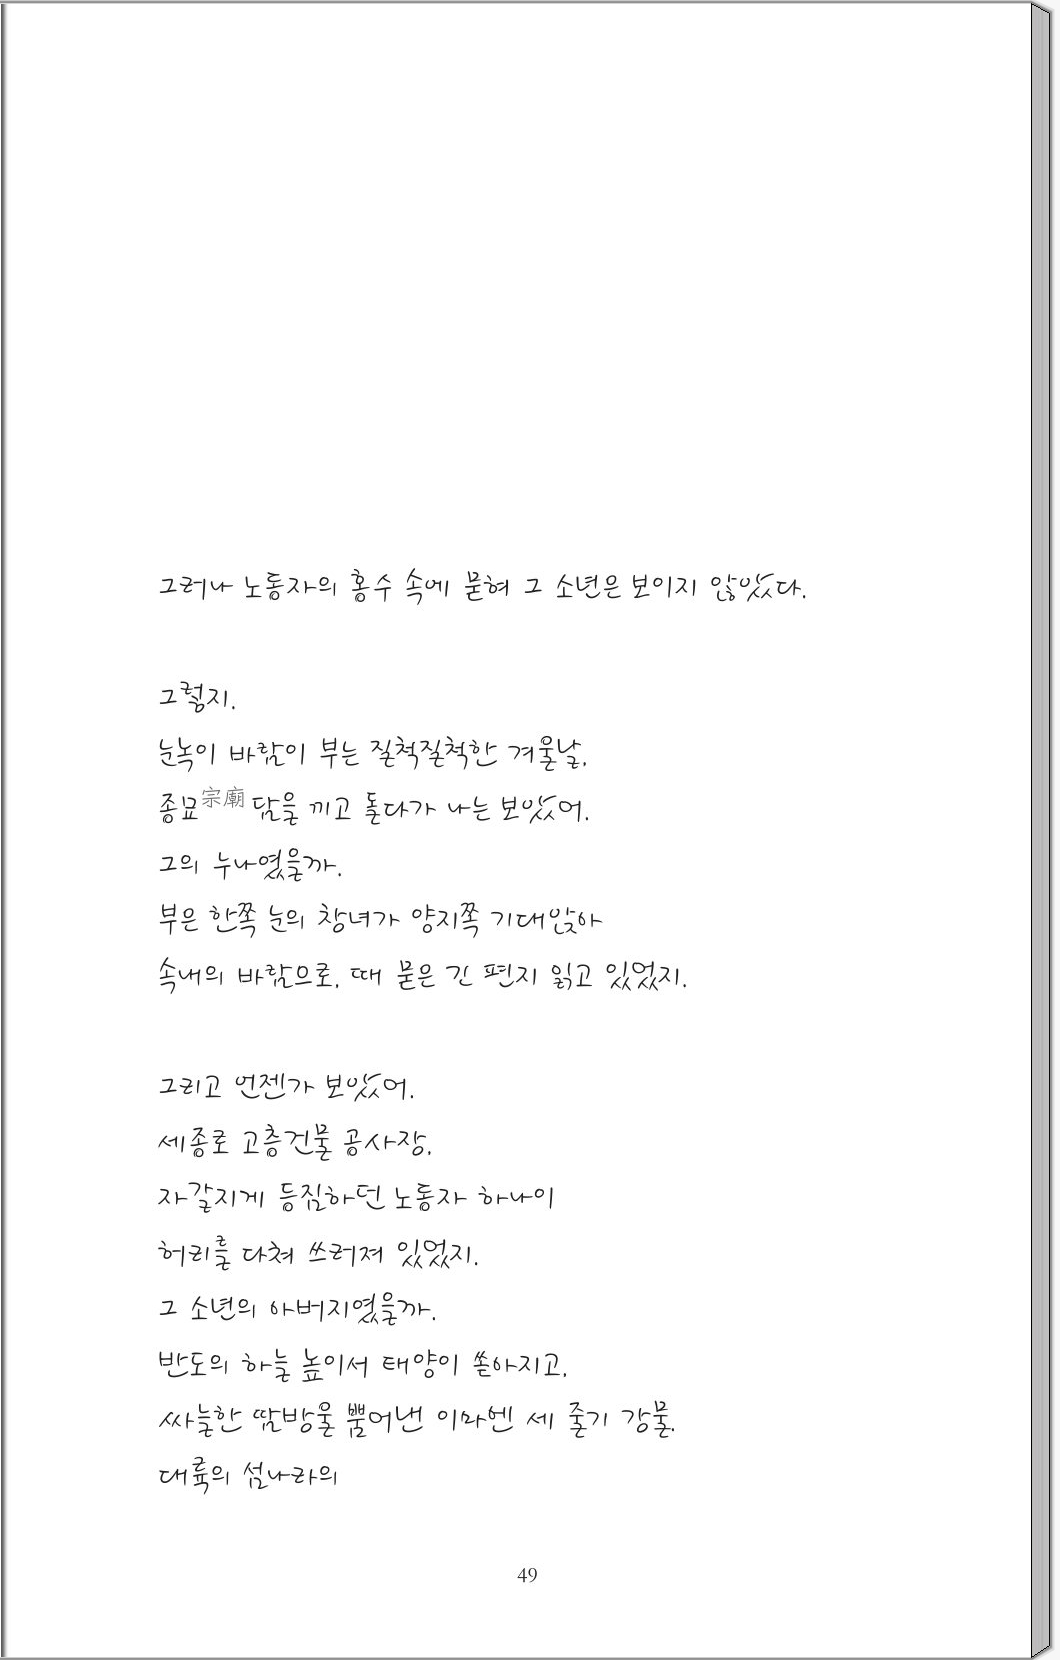 그러나 노동자의 홍수 속에 묻혀 그 소년은 보이지 않았다.
그렇지.
눈녹이 바람이 부는 질척질척한 겨울날,
종묘宗廟 담을 끼고 돌다가 나는 보았어.
그의 누나였을까.
부은 한쪽 눈의 창녀가 양지쪽 기대앉아
속내의 바람으로, 때 묻은 긴 편지 읽고 있었지.
그리고 언젠가 보았어.
세종로 고층건물 공사장,
자갈지게 등짐하던 노동자 하나이
허리를 다쳐 쓰러져 있었지.
그 소년의 아버지였을까.
반도의 하늘 높이서 태양이 쏟아지고,
싸늘한 땀방울 뿜어낸 이마엔 세 줄기 강물.
대륙의 섬나라의
49